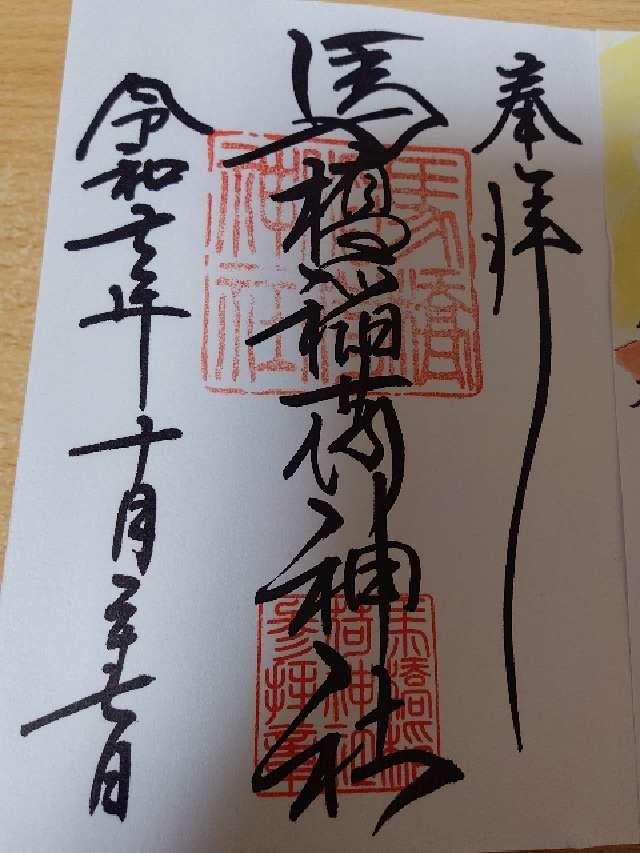 奉拝
馬橋稲荷神社
令和六年十月二十七日
馬橋稲荷神社
馬橋稲荷神社参拝章